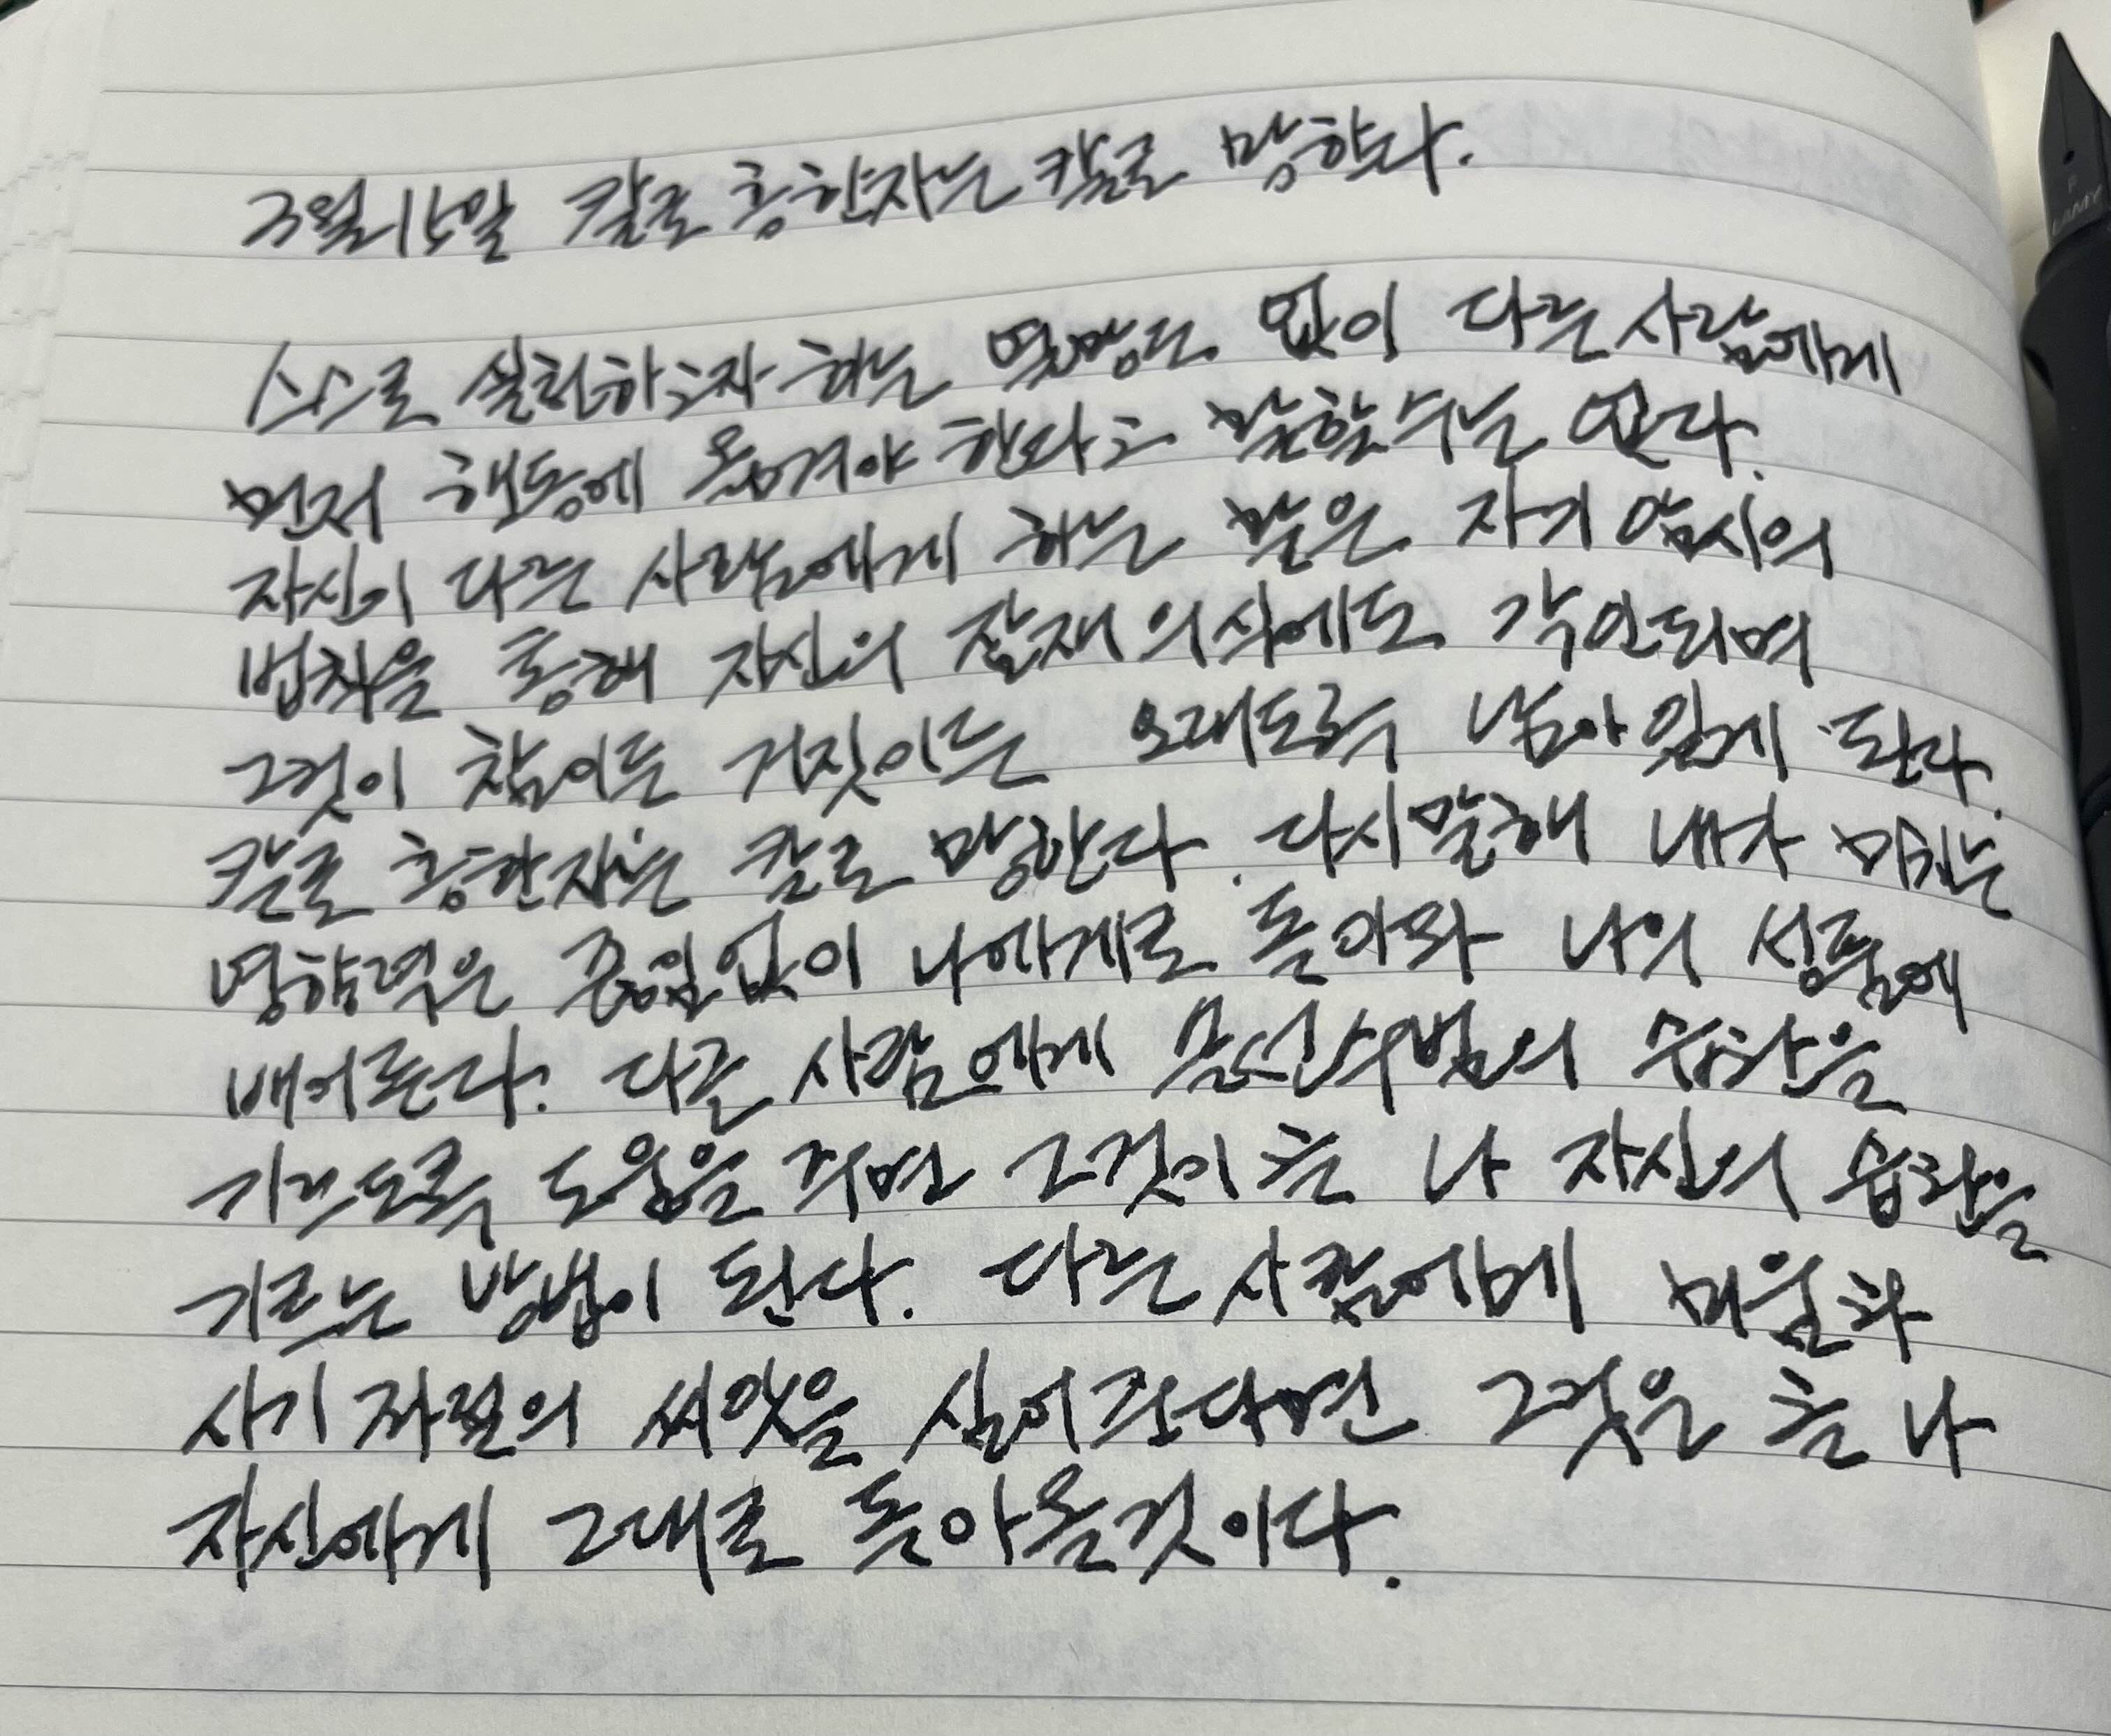 3월 15일 칼로 흥한자는 칼로 망한다.
스스로 실천하고자 하는 열망도 없이 다른 사람에게
먼저 행동에 옮겨야 한다고 말할 수는 없다.
자신이 다른 사람에게 하는 말은 자기 암시의
법칙을 통해 자신의 잠재의식에도 각인되며
그것이 참이든 거짓이든 오래도록 남아 있게 된다.
칼로 흥한자는 칼로 망한다. 다시말해 내가 미치는
영향력은 끊임없이 나에게로 돌아와 나의 성품에
배어든다. 다른 사람에게 솔선수범의 습관을
기르도록 도움을 주면 그것이 곧 나 자신의 습관을
기르는 방법이 된다. 다른 사람에게 미움과
시기 좌절의 씨앗을 심어준다면 그것은 곧 나
자신에게 그대로 돌아올것이다.
LAMY